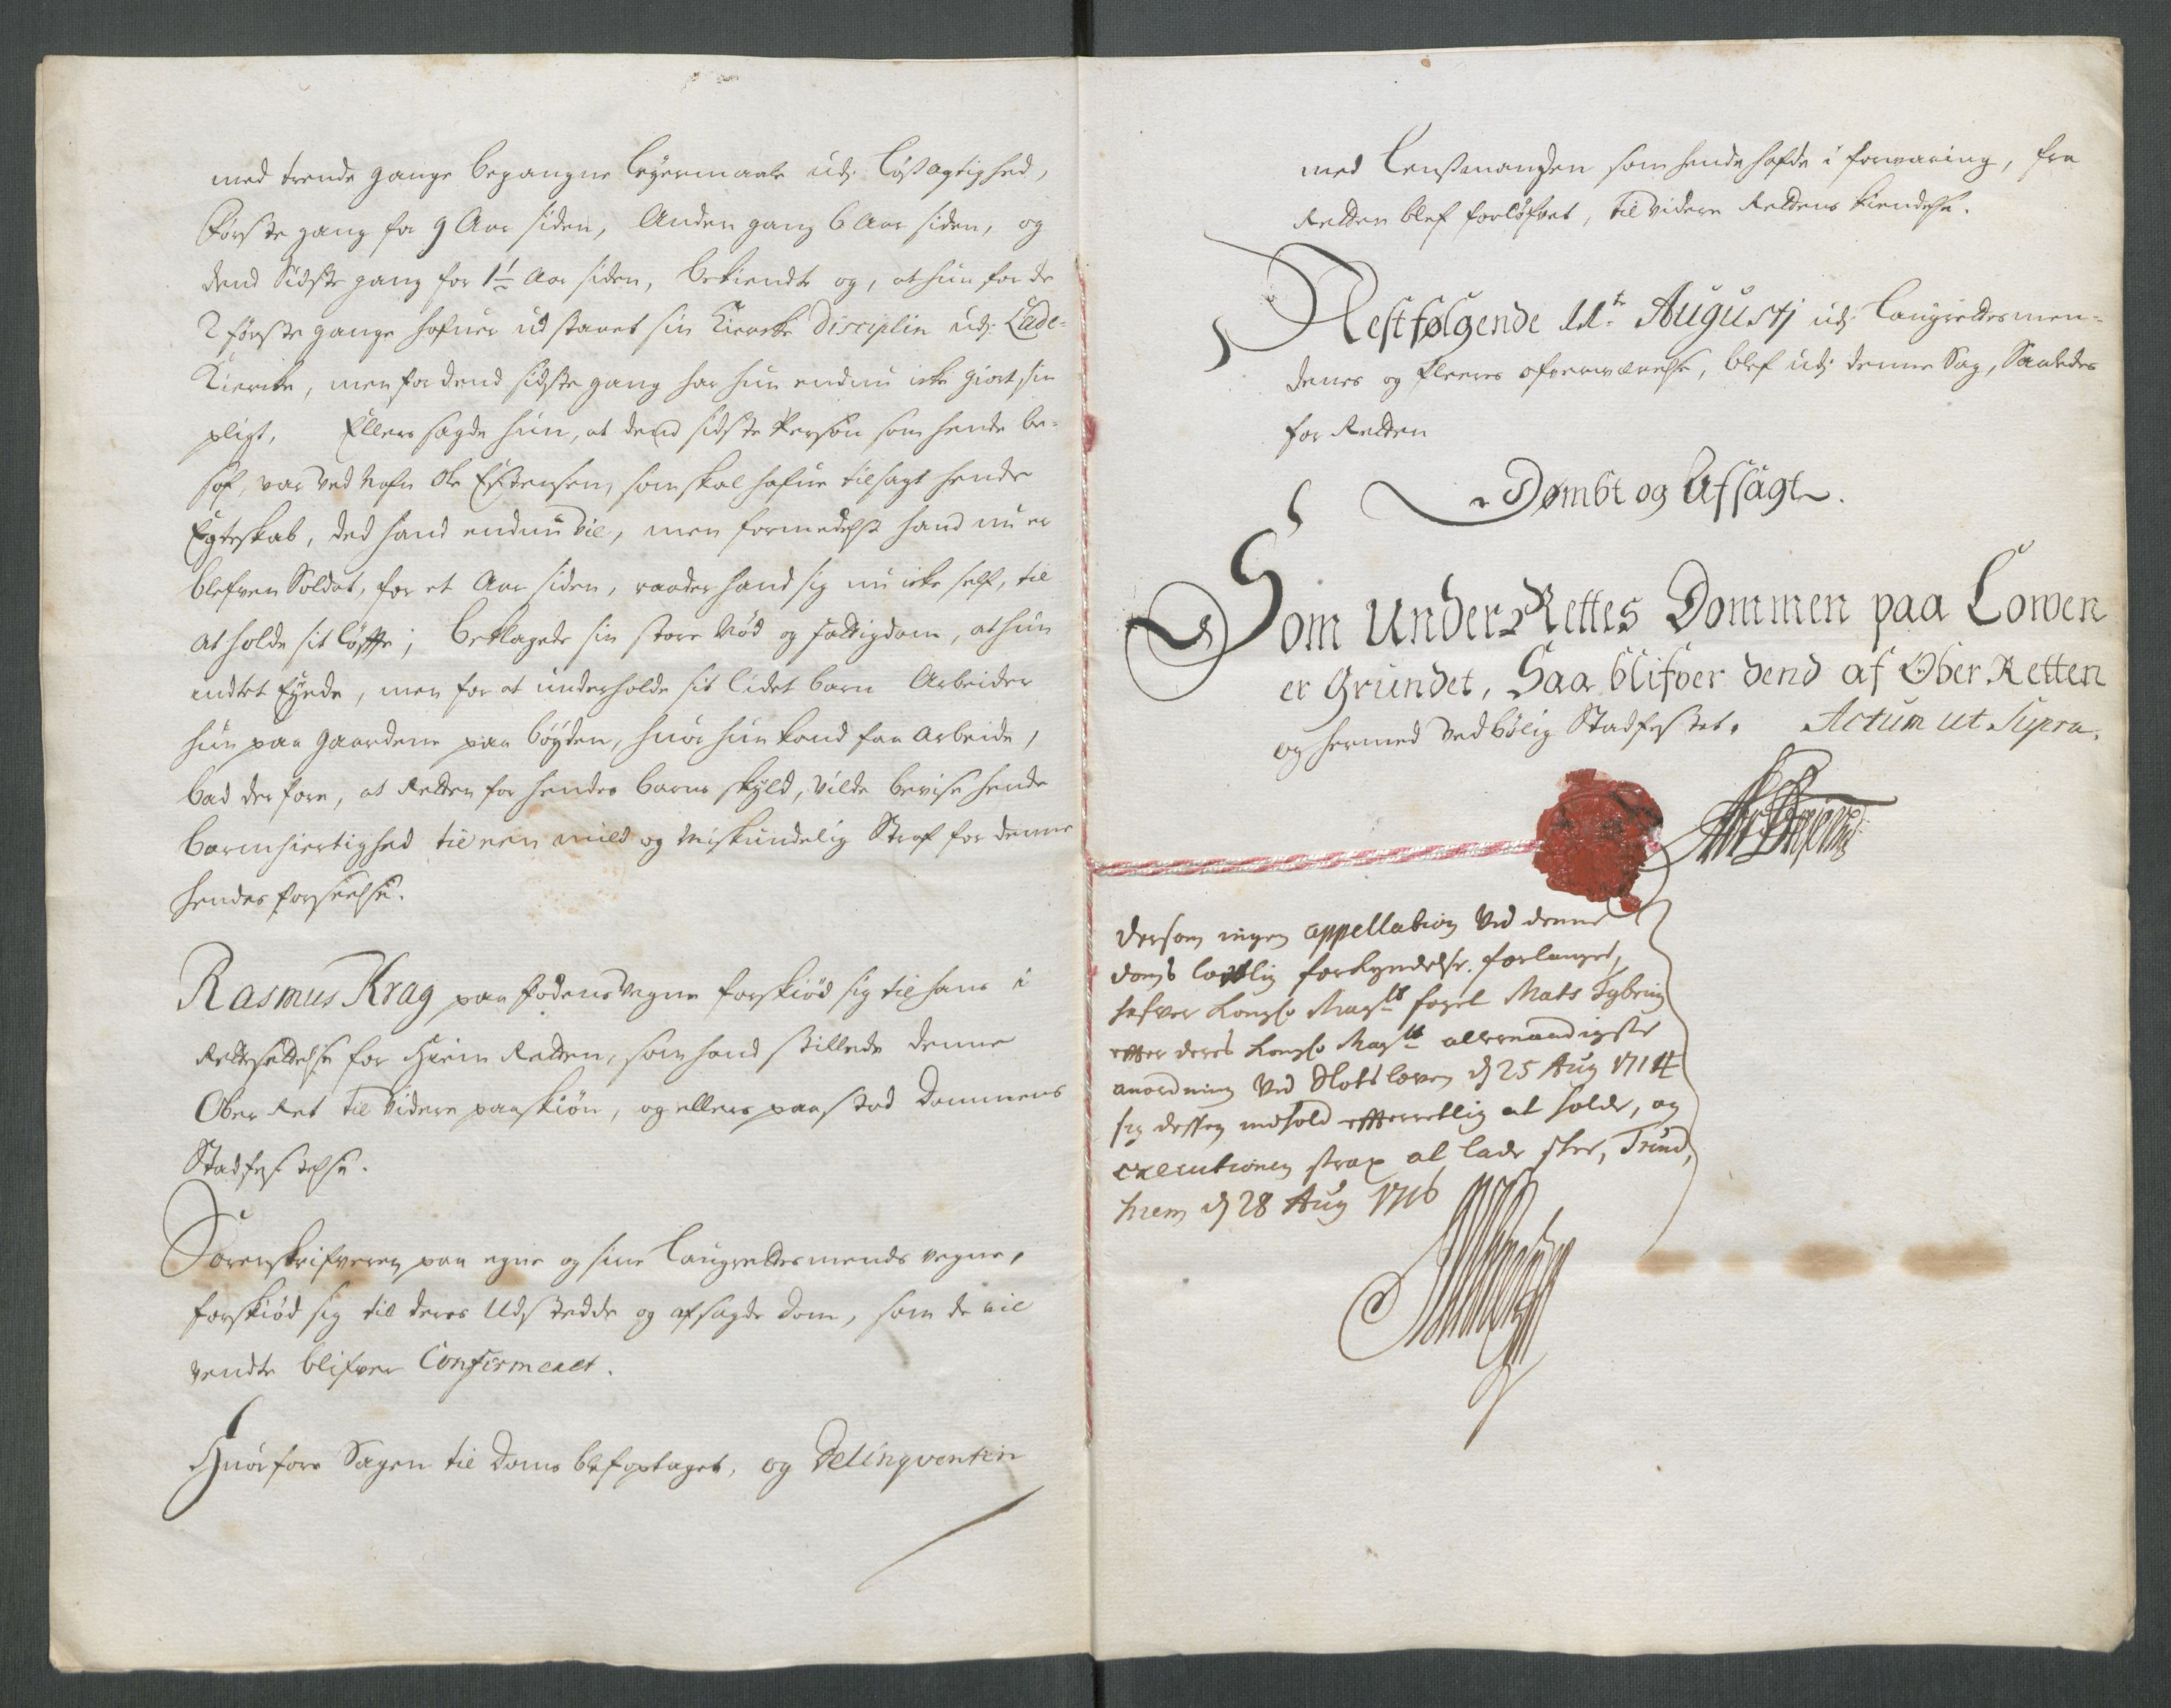 med trende gange begangne leyermaale udj løsagtighed,
Første gang for 9 Aar siden, Anden gang 6 Aar siden, og
dend Sidste gang for 1½ Aar siden, bekiendte og, at hun for de
2 første gange hafuer udstaaet sin Kiercke Disciplin udj Lade-
Kiercke, men for dend sidste gang har hun endnu icke giort sin
pligt, Ellers sagde hun, at dend sidste Person som hende be-
sof, var ved Nafn Ole Estensen, som skal hafue tilsagt hende
Egteskab, ded hand endnu vil, men formedelst hand nu er
blefven Soldat, for et Aar siden, raader hand sig nu icke self, til
at holde sit løffte; beklagede sin store Nød og fattigdom, at hun
indtet Eyede, men for at underholde sit lidet barn Arbeider
hun paa gaardene paa bøyden, huor hun kand faa arbeide,
bad derfore, at Retten for hendes barns skyld, vilde bevise hende
barmhiertighed til een mild og Miskundelig Straf for denne
hendes forseelse.
Rasmus Krag paa fodens vegne forskiød sig til hans i
Rettesettelse for Hiem Retten, som hand stillede denne
Ober Ret til videre paaskiøn, og ellers paastod Dommens
Stadfestelse.
Sorenskrifveren paa egne og sine laugrettesmends vegne,
forskiød sig til deres Udstedde og afsagde dom, som de vil
vendte blifver Confirmeret.
Huorfore Sagen til Doms blef optaget, og Delinqventin
med Lensmanden som hende hafde i forvaring, fra
Retten blef forløfvet, til videre Rettens kiendelse.
Nestfølgende 11te Augustj udj laugrettesmen-
denes og fleeres ofververelse, blef udj denne Sag, Saaledes
for Retten
Dømbt og Afsagt.
Som Under-Rettes Dommen paa Lowen
er Grundet, Saa blifver dend af Ober Retten
og hermed ved bølig Stadfestet. Actum ut Supra.
dersom ingen appellation Ved denne
doms lovlig forkyndelse forlanget,
hafver Kongl. Mayts foget Mats Sybring
efter deres Kongl. Mayts allernaadigste
anordning Ved Slotsloven d 25 Aug 1714
sig dessen indhold efterrettlig at holde, og
executionen strax at lade skee, Trund,
hiem d 28 Aug 1716